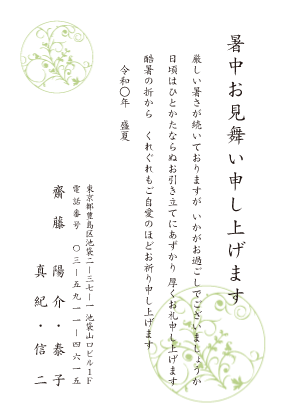 暑中お見舞い申し上げます
厳しい暑さが続いておりますが いかがお過ごしでございましょうか
日頃はひとかたならぬお引き立てにあずかり 厚くお礼申し上げます
酷暑の折から くれぐれもご自愛のほどお祈り申し上げます
令和〇年 盛夏
東京都豊島区池袋二―三七―一 池袋山口ビル1F
電話番号 〇三―五九一一―四六一五
齋藤 陽介・泰子
真紀・信二